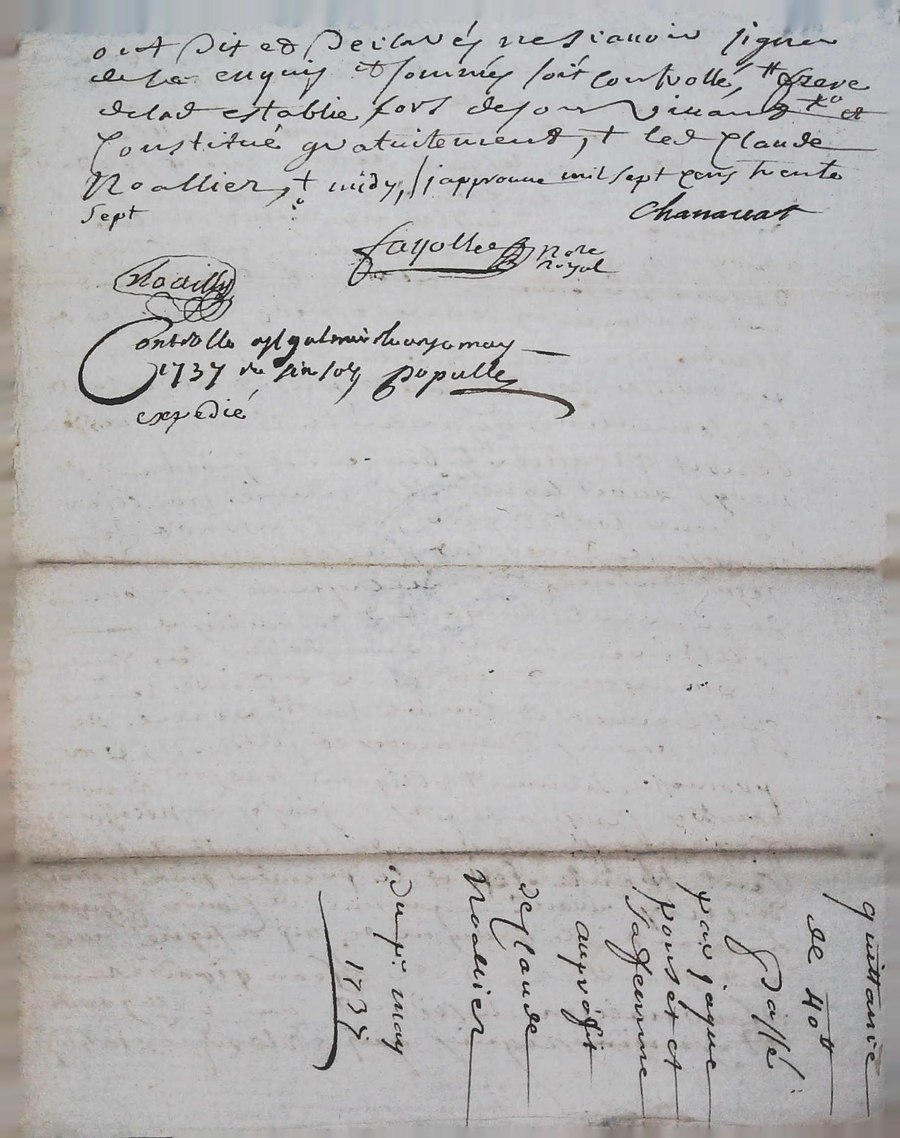 ont Dit et Declarés ne scavoir signer
de ce enquis et sommés soit controllé, # frere
delad establie fors deson vivant et
Constitué gratuitement, + led Claude
Noallier, + midy, // j'approuve mil sept cens trente
sept
Chanavat
fayolle nore
royal
Noailly
Controlle a may
1737 six sols populle
expedié
quittance
de 40tt
passé
par jaque
ponset et
sa femme
au profit
de Claude
Noallier
du pr. may
1737